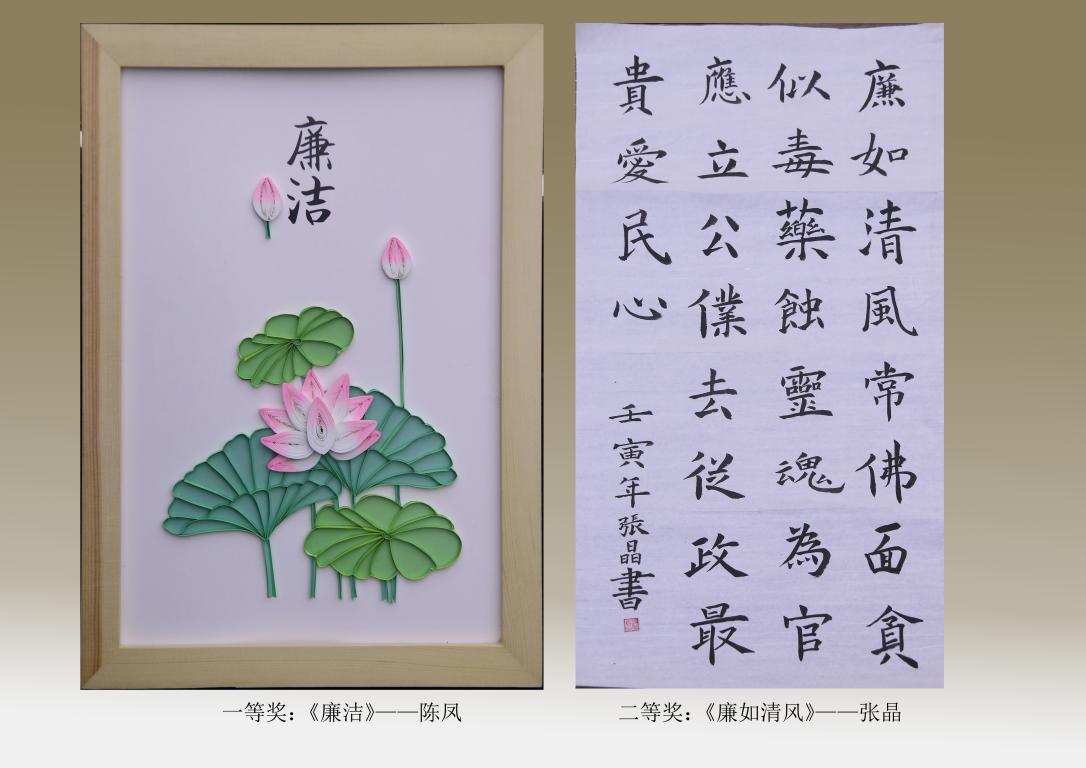 廉
洁
廉如清風常佛面貪
似毒藥蝕靈魂為官
應立公僕去從政最
貴愛民心
壬寅年張晶書
一等奖：《廉洁》——陈凤
二等奖：《廉如清风》——张晶